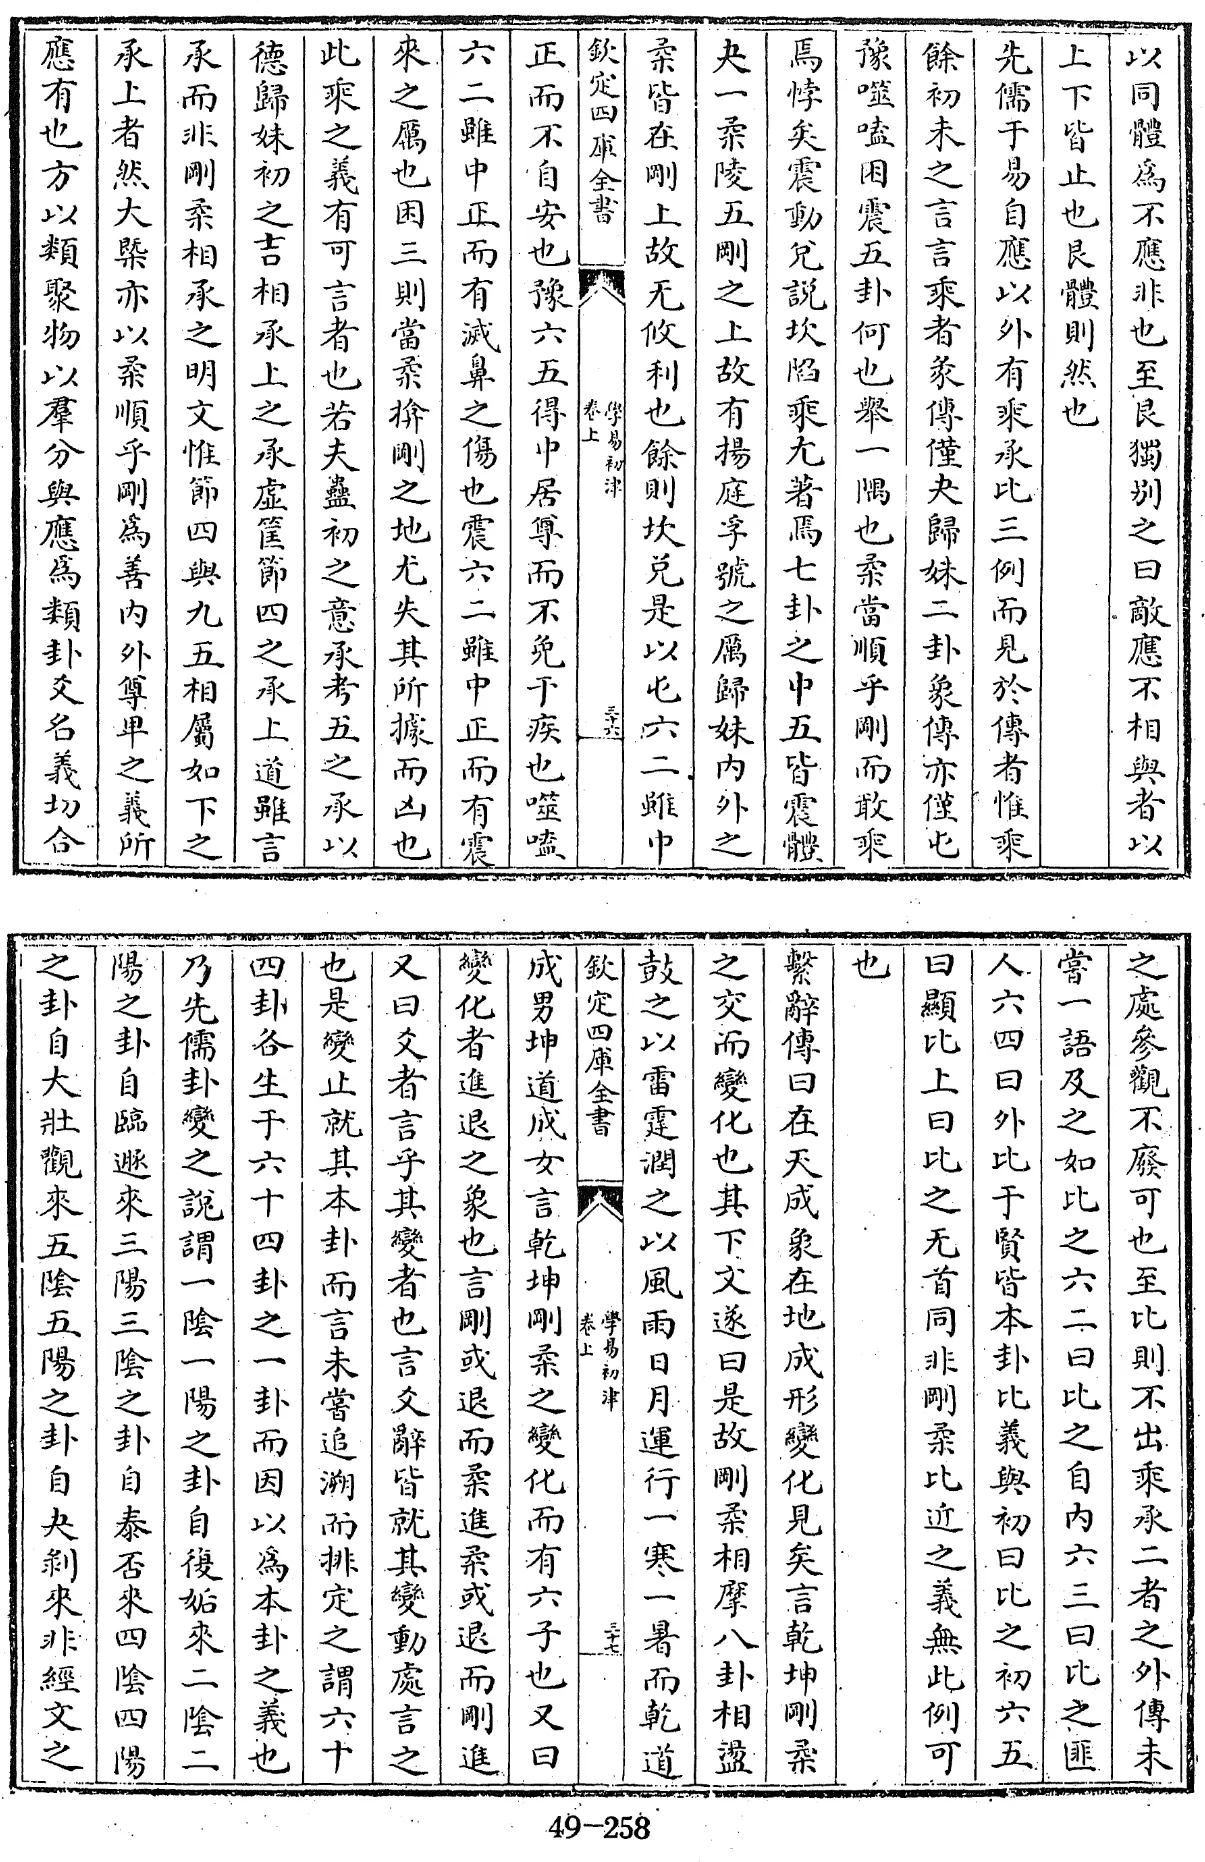 以同體為不應非也至艮獨別之曰敵應不相與者以
上下皆止也艮體則然也
先儒于易自應以外有乘承比三例而見於傳者惟乘
餘初未之言言乘者彖傳僅夬歸妹二卦象傳亦僅屯
豫噬嗑困震五卦何也舉一隅也柔當順乎剛而敢乘
焉悖矣震動兌説坎陷乘尤著焉七卦之中五皆震體
夬一柔陵五剛之上故有揚庭孚號之厲歸妹内外之
柔皆在剛上故无攸利也餘則坎兌是以屯六二雖中
欽定四庫全書
學易初津
卷上
三十六
正而不自安也豫六五得中居尊而不免于疾也噬嗑
六二雖中正而有滅鼻之傷也震六二雖中正而有震
來之厲也困三則當柔揜剛之地尤失其所據而凶也
此乘之義有可言者也若夫蠱初之意承考五之承以
德歸妹初之吉相承上之承虛筐節四之承上道雖言
承而非剛柔相承之明文惟節四與九五相屬如下之
承上者然大槩亦以柔順乎剛為善内外尊卑之義所
應有也方以類聚物以羣分與應為類卦爻名義切合
之處參觀不廢可也至比則不出乘承二者之外傳未
嘗一語及之如比之六二曰比之自内六三曰比之匪
人六四曰外比于賢皆本卦比義與初曰比之初六五
曰顯比上曰比之无首同非剛柔比近之義無此例可
也
繫辭傳曰在天成象在地成形變化見矣言乾坤剛柔
之交而變化也其下文遂曰是故剛柔相摩八卦相盪
鼓之以雷霆潤之以風雨日月運行一寒一暑而乾道
欽定四庫全書
學易初津
卷上
三十七
成男坤道成女言乾坤剛柔之變化而有六子也又曰
變化者進退之象也言剛或退而柔進柔或退而剛進
又曰爻者言乎其變者也言爻辭皆就其變動處言之
也是變止就其本卦而言未嘗追溯而排定之謂六十
四卦各生于六十四卦之一卦而因以為本卦之義也
乃先儒卦變之說謂一陰一陽之卦自復姤來二陰二
陽之卦自臨遯來三陽三陰之卦自泰否來四陰四陽
之卦自大壯觀來五陰五陽之卦自夬剝來非經文之
49-258